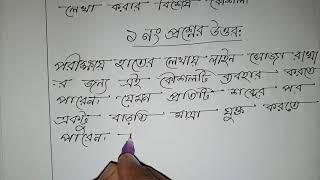 লেখা করার বিশেষ কৌশল।
১ নং প্রশ্নের উত্তর:
পরীক্ষায় হাতের লেখায় লাইন সোজা রাখা
র জন্য এই কৌশলটি ব্যবহার করতে
পারেন। যেমন প্রতিটি শব্দের পর
একটু বাড়তি মাত্রা যুক্ত করতে
পারেন।